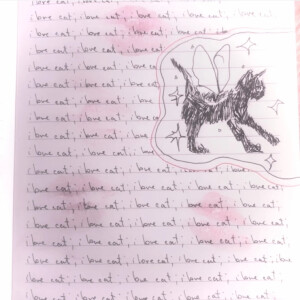 i love cat, i love cat, i love cat, i love cat, i love cat
i love cat, i love cat, i love cat, i love cat, i love cat
i love cat, i love cat, i love cat, i love cat
i love cat, i love cat, i love
i love cat, i love cat, i love
i love cat, i love cat, i love
i love cat, i love cat, i love
i love cat, i love cat, i love
i love cat, i love cat, i love
i love cat, i love cat, i love cat, i love
i love cat, i love cat, i love cat, i love cat, i love cat,
i love cat, i love cat, i love cat, i love cat, i love cat,
i love cat, i love cat, i love cat, i love cat, i love cat,
i love cat, i love cat, i love cat, i love cat, i love cat,
i love cat, i love cat, i love cat, i love cat, i love cat,
i love cat, i love cat, i love cat, i love cat, i love cat,
i love cat, i love cat, i love cat, i love cat, i love cat